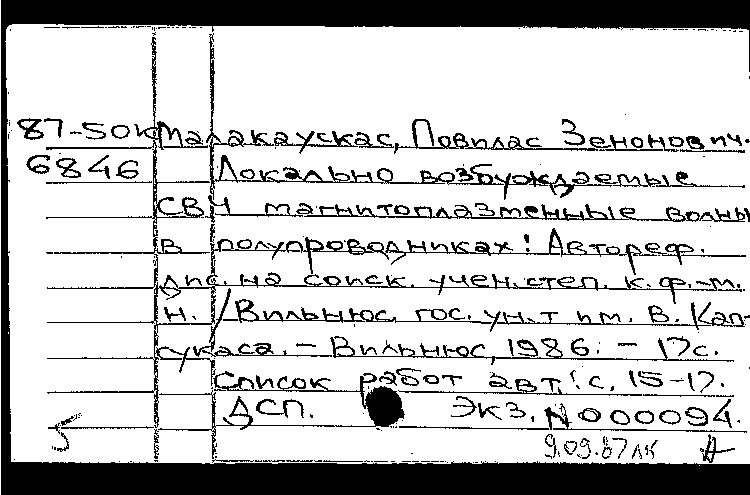 87-50к Малакаускас, Повилас Зенонович.
6846 Локально возбуждаемые
СВЧ магнитоплазменные волны
в полупроводниках: Автореф.
дис. на соиск. учен. степ. к. ф.-м.
н. /Вильнюс. гос. ун-т им. В. Кап-
сукаса. - Вильнюс, 1986. - 17с.
Список работ авт.: с. 15-17.
ДСП. Экз. N 000094.
5 9.09.87лк